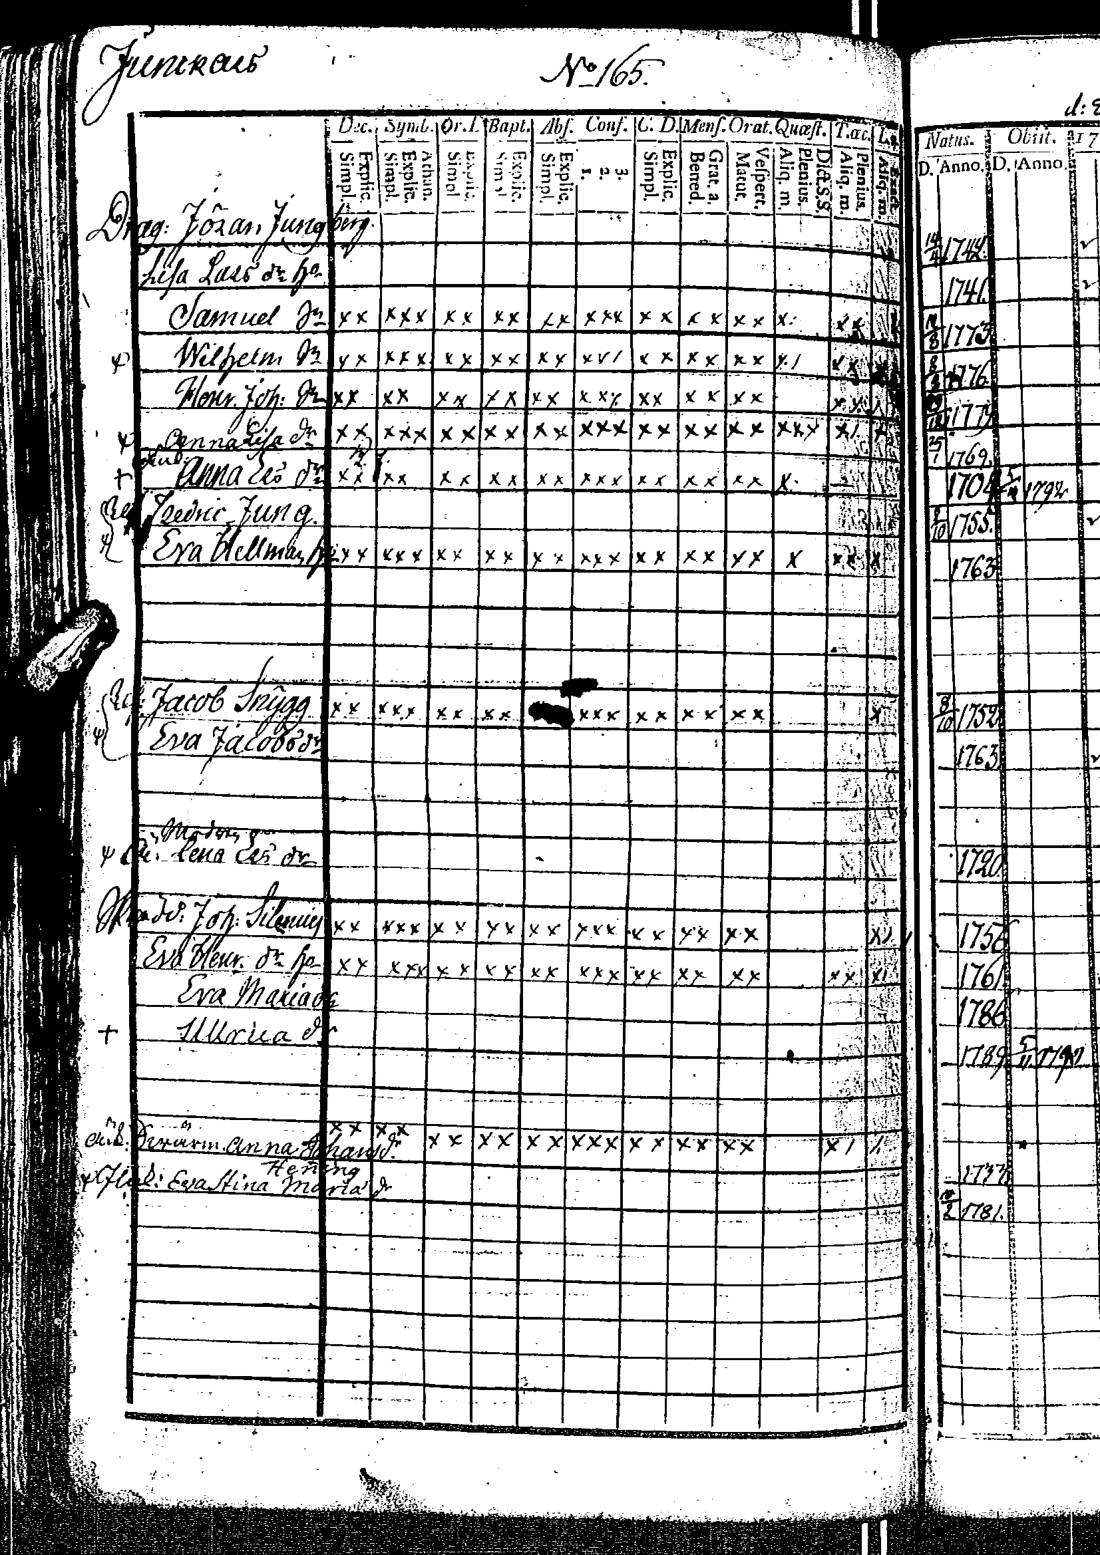 Junkars
No 165.
Dec. Symb. Or. D. Bapt. Abs. Conf. C. D. Mens. Orat. Quæst. T. œc. Natus. Obiit. 17
Simpl. Explic. Simpl. Explic. Athan. Simpl. Explic. Simpl. Explic. Simpl. Explic. 1. 2. 3. Simpl. Explic. Bened. Grat. a. Matut. Vespert. Aliq. m. Plenius. Dict. S.S. Aliq. m. Plenius. Aliq. m. Exact. D. Anno. D. Anno.
Drag: Jöran Jungberg. 14/4 1742.
Lisa Lars dr hu 1741.
Samuel Sn 1773
Wilhelm Sn 1776
Henr. Joh: Sn 1779
Anna Lisa dr 25/1 1769.
Anna Ers dr 1704 1792
Fredric Jung. 1755.
Eva Hellman hu 1763
Jacob Snygg 8/10 1752
Eva Jacobs dr 1763
Modren
Lena Ers dr 1720
Joh: Silenius 1756
Eva Henr. dr hu 1761
Eva Maria dr 1786
Ulrica dr 1789 5/11 1791
Svärm. Anna Johans dr 1733
Hening
Flick: Eva Stina Maria dr 1781.